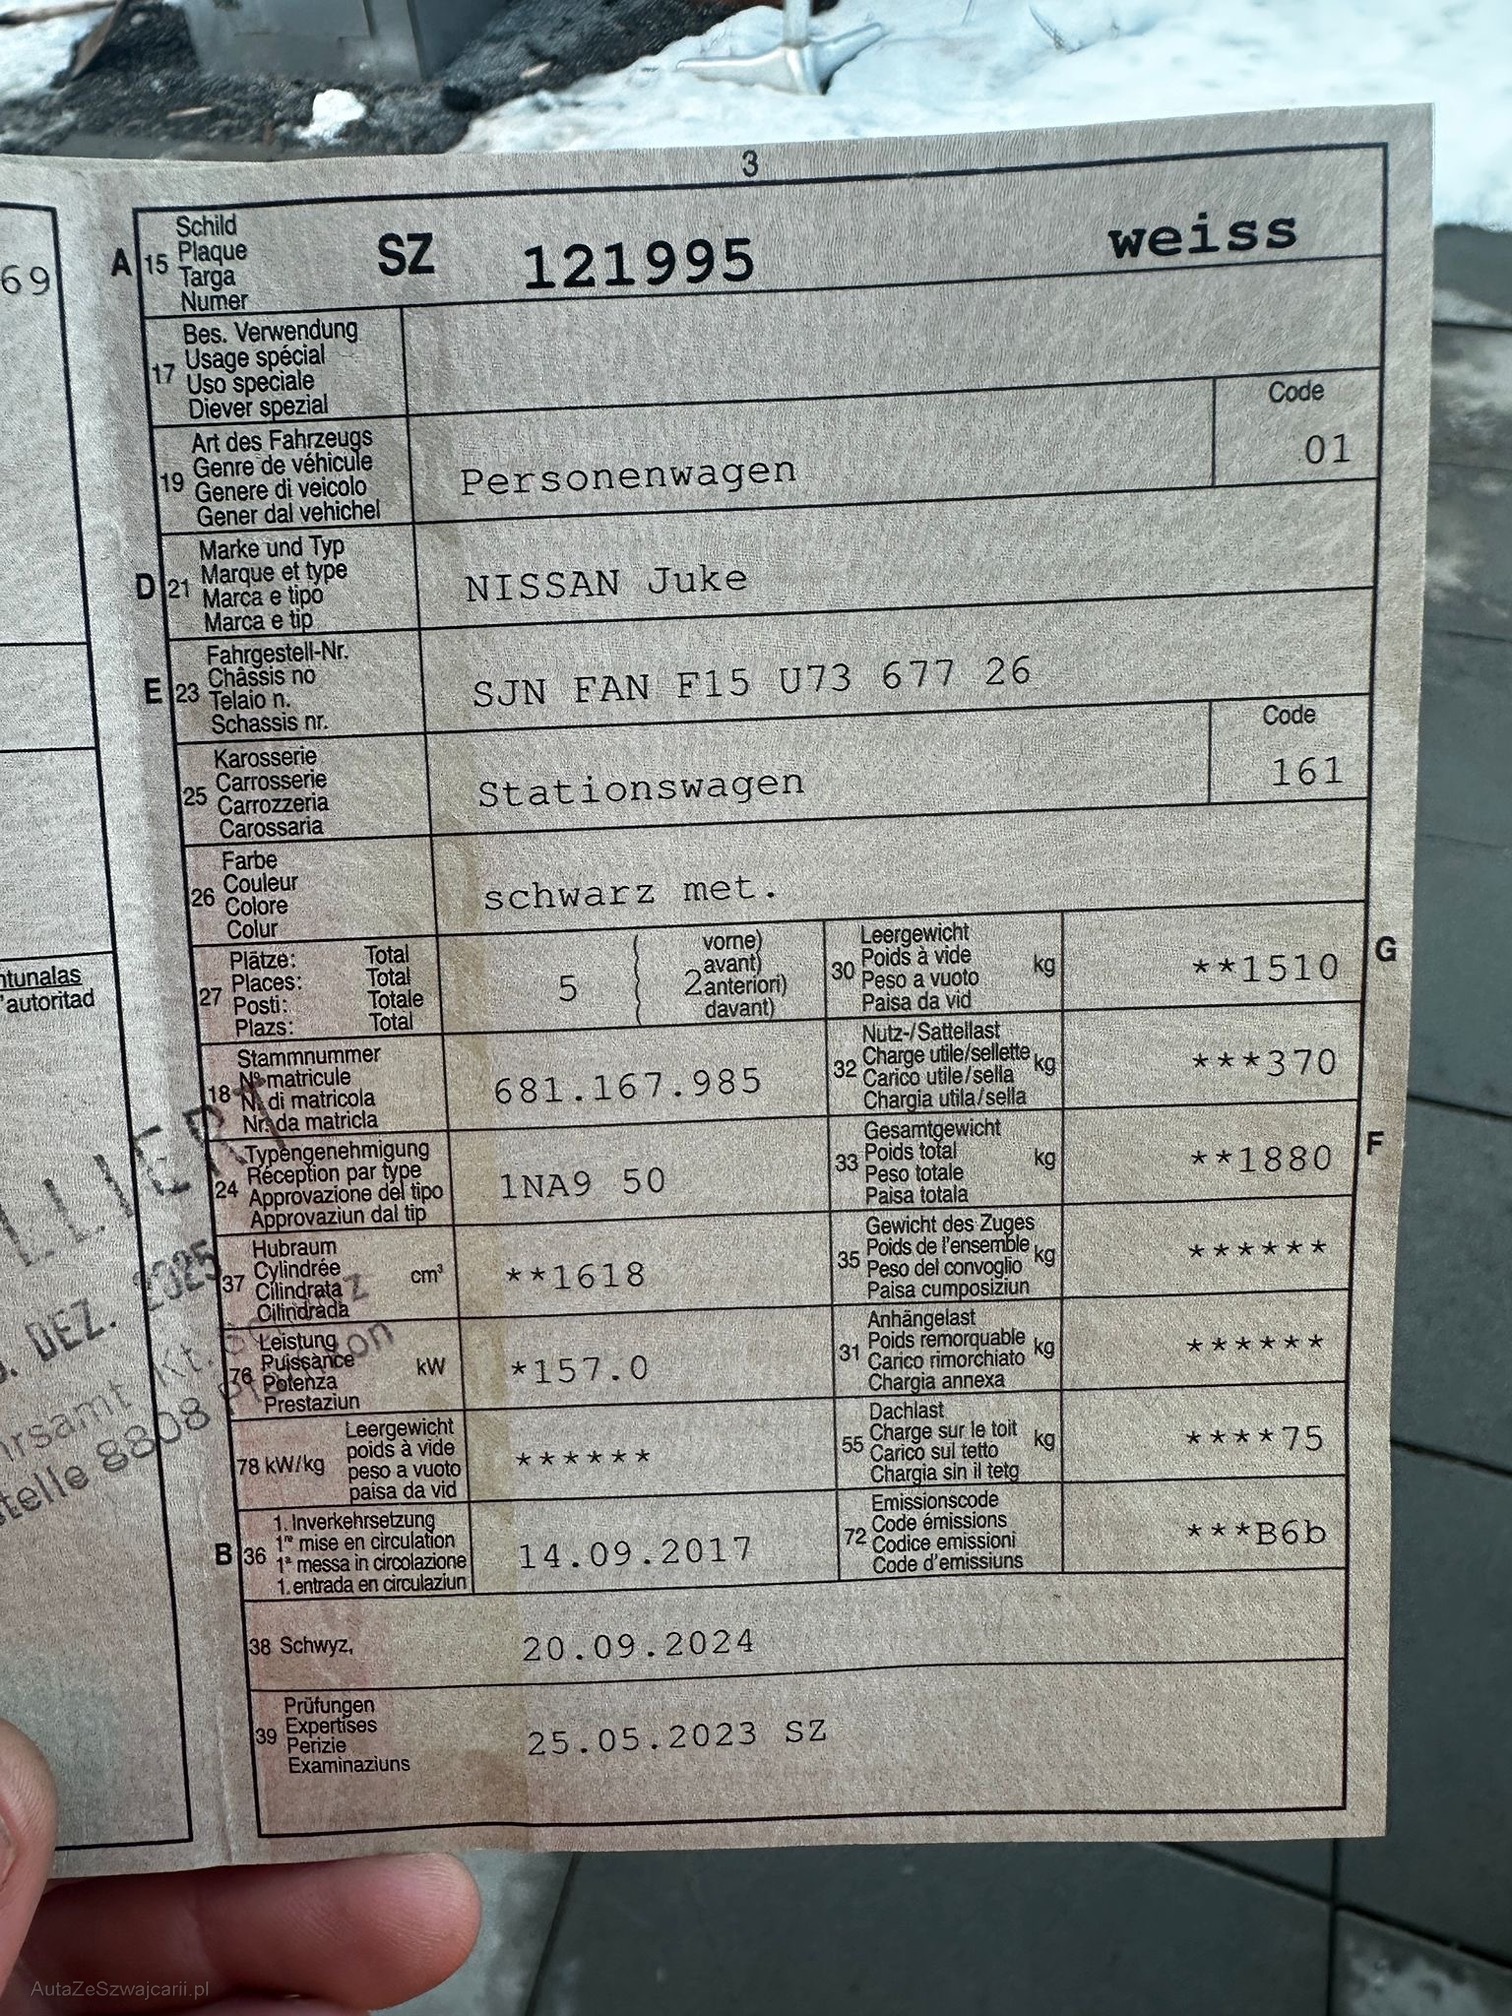 3
69
A 15 Schild
Plaque
Targa
Numer
SZ 121995 weiss
17 Bes. Verwendung
Usage spécial
Uso speciale
Diever spezial
19 Art des Fahrzeugs
Genre de véhicule
Genere di veicolo
Gener dal vehichel
Personenwagen
Code
01
D 21 Marke und Typ
Marque et type
Marca e tipo
Marca e tip
NISSAN Juke
E 23 Fahrgestell-Nr.
Châssis no
Telaio n.
Schassis nr.
SJN FAN F15 U73 677 26
25 Karosserie
Carrosserie
Carrozzeria
Carossaria
Stationswagen
Code
161
26 Farbe
Couleur
Colore
Colur
schwarz met.
27 Plätze: Total
Places: Total
Posti: Totale
Plazs: Total
5
vorne)
avant)
2 anteriori)
davant)
30 Leergewicht
Poids à vide kg
Peso a vuoto
Paisa da vid
**1510
G
18 Stammnummer
No matricule
N. di matricola
Nr. da matricla
681.167.985
32 Nutz-/Sattellast
Charge utile/sellette kg
Carico utile/sella
Chargia utila/sella
***370
24 Typengenehmigung
Réception par type
Approvazione del tipo
Approvaziun dal tip
1NA9 50
33 Gesamtgewicht
Poids total kg
Peso totale
Paisa totala
**1880
F
37 Hubraum
Cylindrée cm³
Cilindrata
Cilindrada
**1618
35 Gewicht des Zuges
Poids de l'ensemble kg
Peso del convoglio
Paisa cumposiziun
******
76 Leistung
Puissance kW
Potenza
Prestaziun
*157.0
31 Anhängelast
Poids remorquable kg
Carico rimorchiato
Chargia annexa
******
78 kW/kg Leergewicht
poids à vide
peso a vuoto
paisa da vid
******
55 Dachlast
Charge sur le toit kg
Carico sul tetto
Chargia sin il tetg
****75
B 36 1. Inverkehrsetzung
1re mise en circulation
1a messa in circolazione
1. entrada en circulaziun
14.09.2017
72 Emissionscode
Code émissions
Codice emissioni
Code d'emissiuns
***B6b
38 Schwyz, 20.09.2024
39 Prüfungen
Expertises
Perizie
Examinaziuns
25.05.2023 SZ
ntunalas
'autoritad
LLIERT
DEZ. 2025
rsamt Kt.
telle 8808
AutaZeSzwajcarii.pl